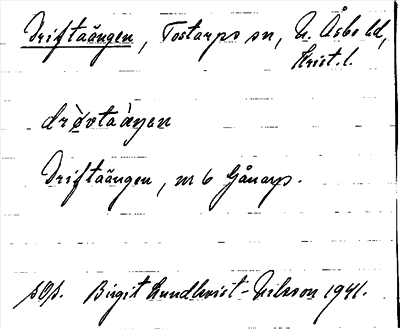 Driftaängen, Tostarps sn, N. Åsbo hd,
Krist. l.
drøvtaàŋen
Driftaängen, nr 6 Gånarp.
Birgit Lundkvist-Nilsson 1941.